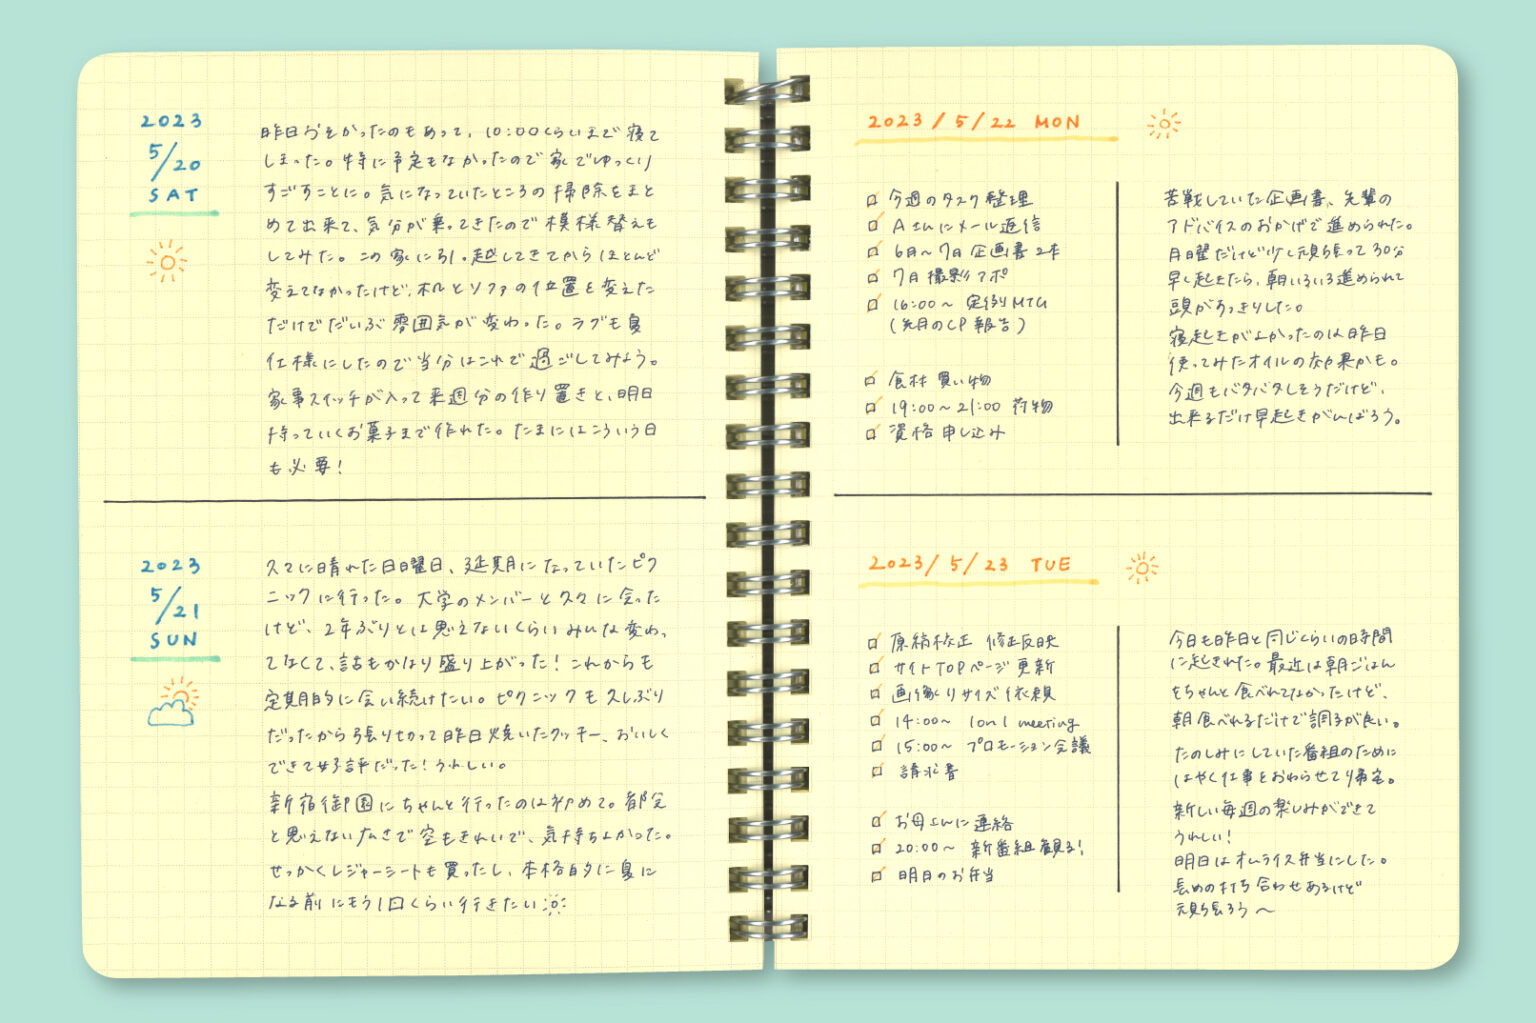 2023
5/20
SAT
昨日おそかったのもあって、10:00くらいまで寝て
しまった。特に予定もなかったので家でゆっくり
すごすことに。気になっていたところの掃除をまと
めて出来て、気分が乗ってきたので模様替えも
してみた。この家に引っ越してきてからほとんど
変えてなかったけど、机とソファの位置を変えた
だけでだいぶ雰囲気が変わった。ラグも夏
仕様にしたので当分はこれで過ごしてみよう。
家事スイッチが入って来週分の作り置きと、明日
持っていくお菓子まで作れた。たまにはこういう日
も必要！
2023
5/21
SUN
久々に晴れた日曜日、延期になっていたピク
ニックに行った。大学のメンバーと久々に会った
けど、2年ぶりとは思えないくらいみんな変わっ
てなくて、話もかなり盛り上がった！これからも
定期的に会い続けたい。ピクニックも久しぶり
だったから張り切って昨日焼いたクッキー、おいしく
できて好評だった！うれしい。
新宿御園にちゃんと行ったのは初めて。都会
と思えない広さで空もきれいで、気持ちよかった。
せっかくレジャーシートも買ったし、本格的に夏に
なる前にもう1回くらい行きたい
2023/5/22 MON
今週のタスク整理
Aさんにメール返信
6月〜7月企画書2本
7月撮影アポ
16:00〜 定例MTG
(先月のCP報告)
食材買い物
19:00〜21:00 荷物
資格申し込み
苦戦していた企画書、先輩の
アドバイスのおかげで進められた。
月曜だけど少し頑張って30分
早く起きたら、朝いろいろ進められて
頭がすっきりした。
寝起きがよかったのは昨日
使ってみたオイルの効果かも。
今週もバタバタしそうだけど、
出来るだけ早起きがんばろう。
2023/5/23 TUE
原稿校正 修正反映
サイトTOPページ更新
画像リサイズ依頼
14:00〜 1on1 meeting
15:00〜 プロモーション会議
請求書
お母さんに連絡
20:00〜 新番組観る！
明日のお弁当
今日も昨日と同じくらいの時間
に起きれた。最近は朝ごはん
をちゃんと食べれてなかったけど、
朝食べれるだけで調子が良い。
たのしみにしていた番組のために
はやく仕事をおわらせて帰宅。
新しい毎週の楽しみができて
うれしい！
明日はオムライス弁当にした。
長めの打ち合わせあるけど
頑張ろう〜